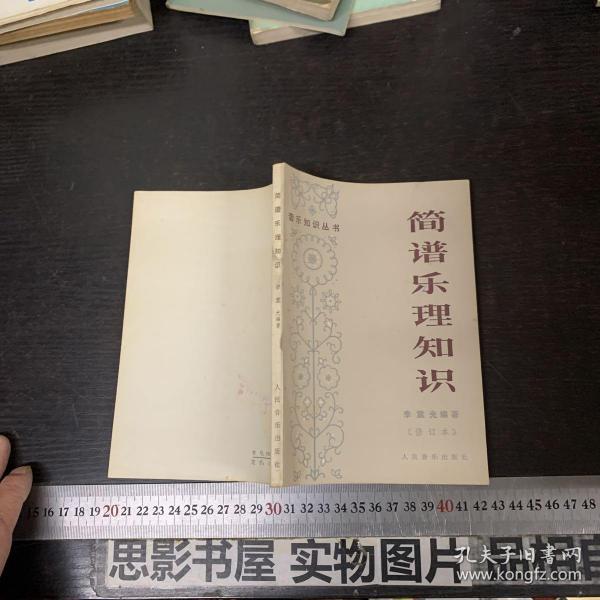 音乐知识丛书
简谱乐理知识
李重光编著
(修订本)
人民音乐出版社
简谱乐理知识
李重光编著
人民音乐出版社
15 16 17 18 19 20 21 22 23 24 25 26 27 28 29 30 31 32 33 34 35 36 37 38 39 40 41 42 43 44 45 46 47 48
思影书屋 实物图片
孔夫子旧书网
www.kongfz.com